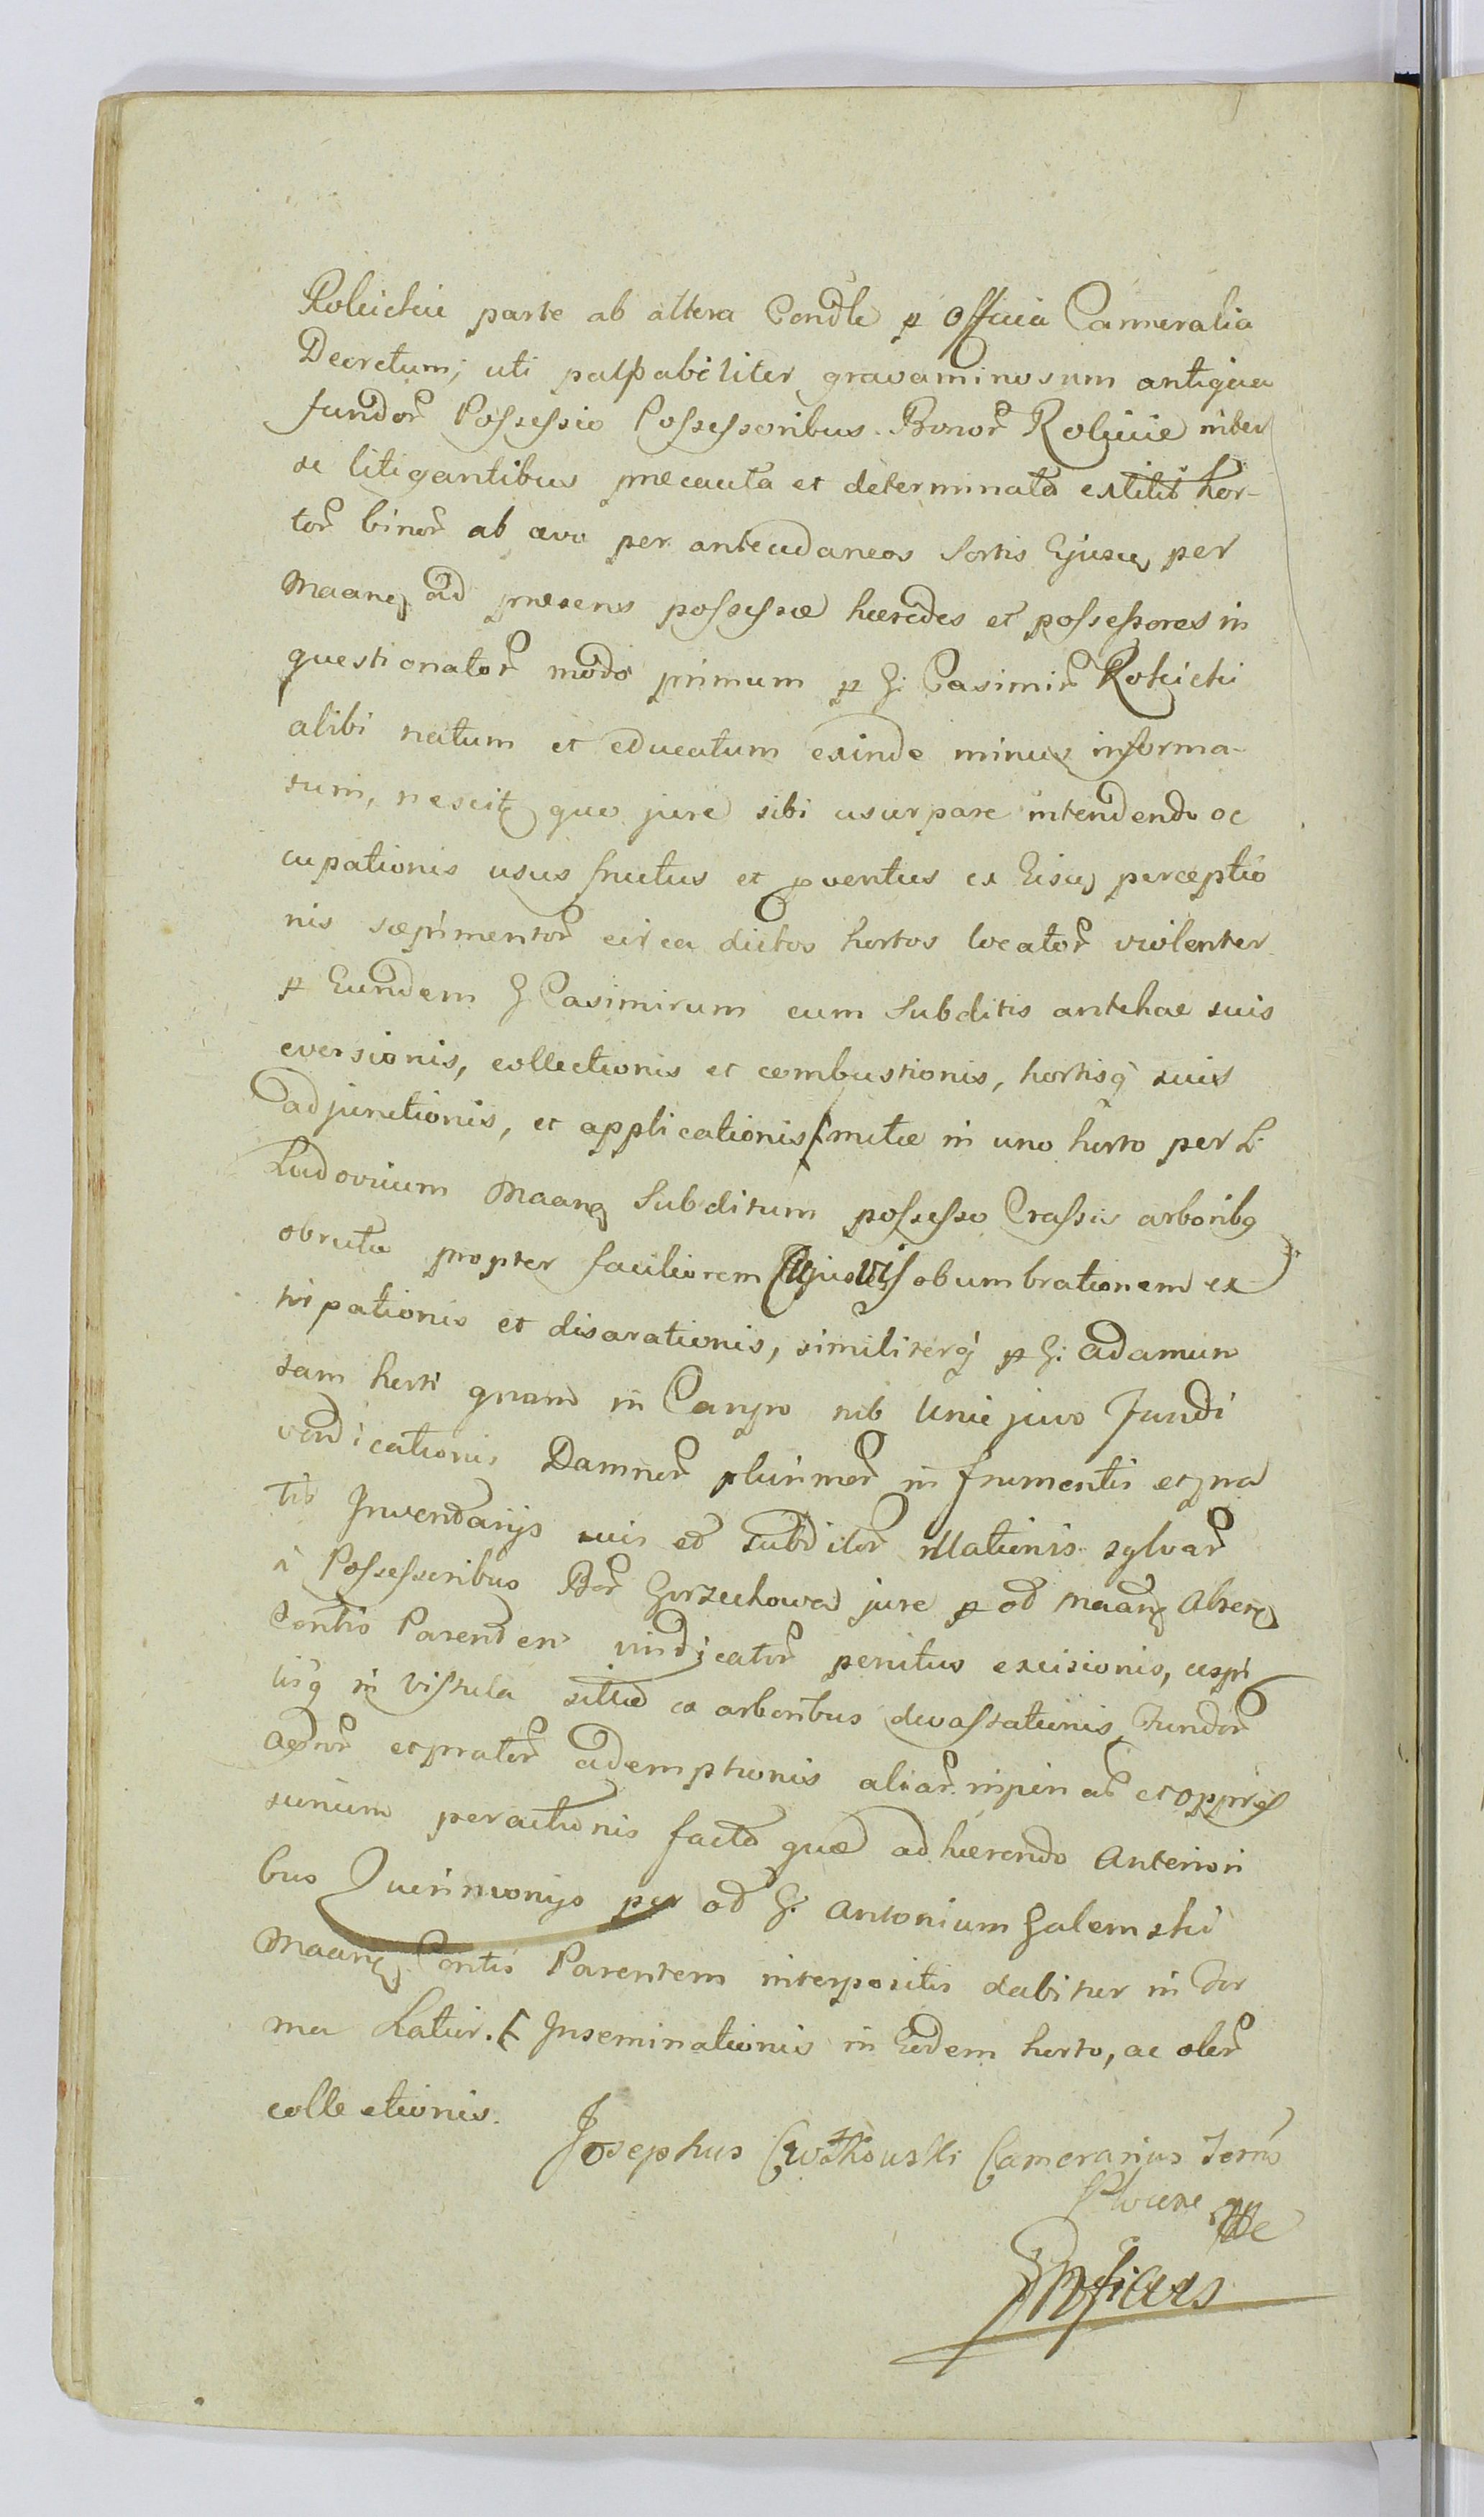 Rokickie parte ab altera Condle p Officia Cameralia
Decretum; uti palpabiliter gravaminosum antiqua
fundor Possessio Possessoribus Bonor Rokicie inter
se litigantibus præcauta et determinata extitit hor-
tor binor ab ævo per antecedaneos sortis Ejusq per
Maang ad præsens possessæ hæredes et possessores in
questionator modo primum p G: Casimir Rokicki
alibi natum et educatum exinde minus informa-
tum, nescitq quo jure sibi usurpare intendendo oc
cupationis usus fructus et pventus ex Eisq perceptio
nis sæpimentor circa dictos hortos locator violenter
p Eundem G Casimirum cum Subditis antehac suis
eversionis, collectionis et combustionis, hortisq suis
adjunctionis, et applicationis metæ in uno horto per L:
Ludovicum Maang Subditum possesso Crassis arboribq
obrutæ propter faciliorem obumbrationem ex
tirpationis et disarationis, similiterq p G: Adamum
tam horti quam in Campo sub fundi
vendicationis Damnor plurimor in frumentis et pra
tis Inventarijs suis et subditor illationis sylvar
à Possessoribus Bor Gorzechowa jure p od Maang
Contis Parentem vindicator penitus excisionis, cespi
tisq in Vistula sitæ ex arboribus devastationis fundor
et prator ademptionis aliar et oppres
sionum peractionis facta quæ adhærendo Anteriori
bus Querimonijs per od G: Antonium Galemski
Maang Contis Parentem interpositis dabitur in For
ma Latior. Inseminationis in Eodem horto, ac oler
collectionis.
Josephus Camerarius Terris